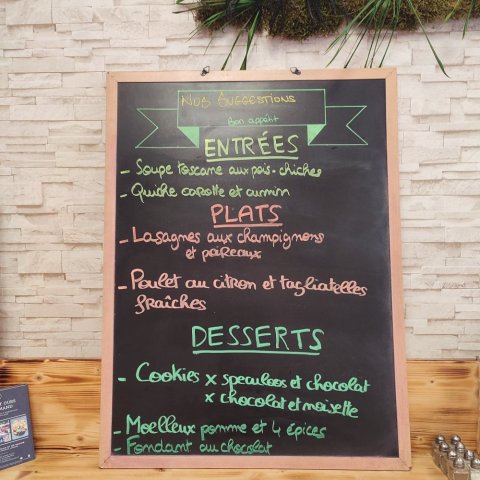 Nos Suggestions
Bon appétit
ENTRÉES
- Soupe toscane aux pois-chiches
- Quiche carotte et cumin
PLATS
- Lasagnes aux champignons
et poireaux
- Poulet au citron et tagliatelles
fraîches
DESSERTS
- Cookies x speculoos et chocolat
x chocolat et noisette
- Moelleux pomme et 4 épices
- Fondant au chocolat